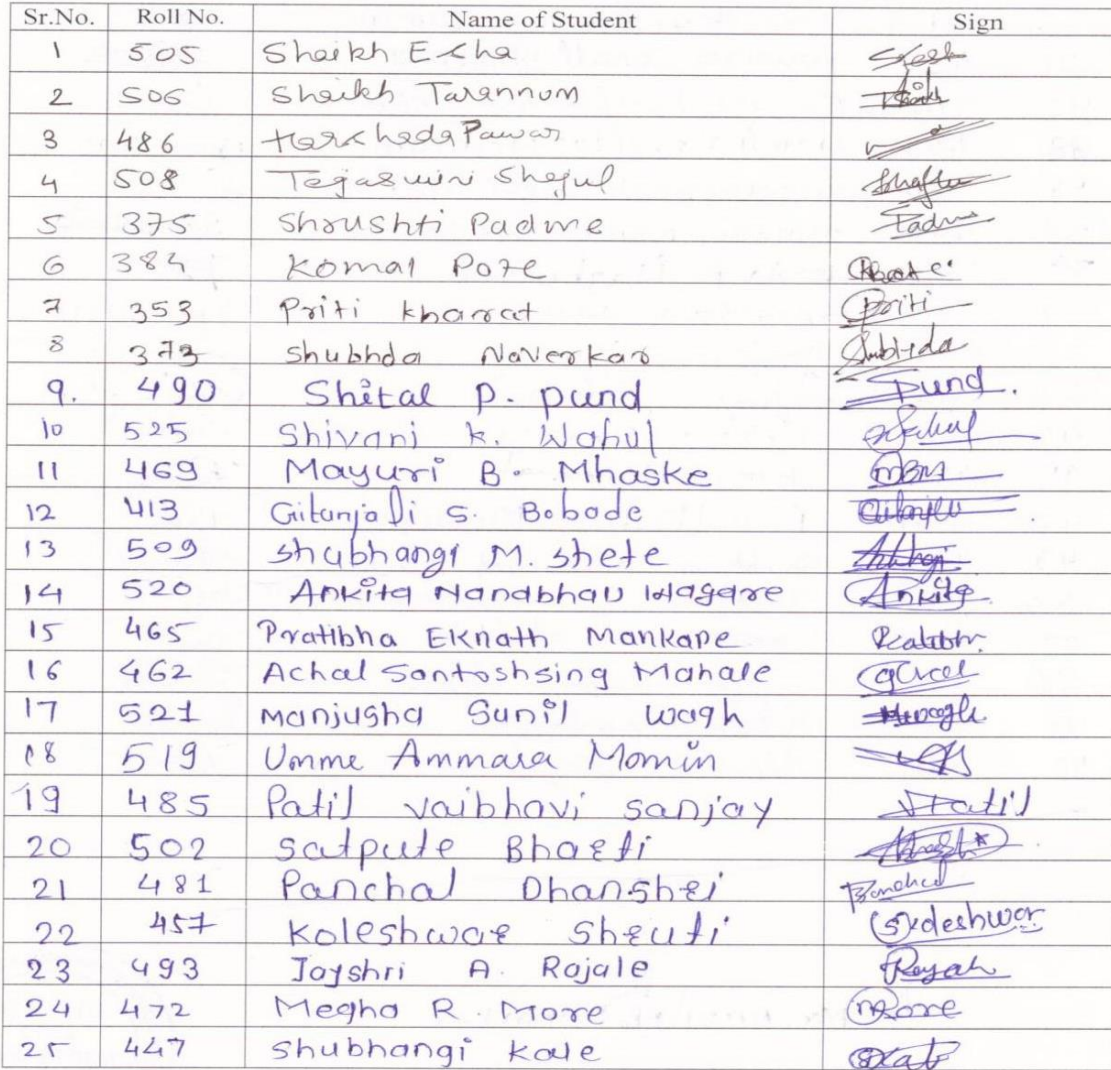 Sr.No. Roll No. Name of Student Sign
1 505 Shaikh Esha
2 506 Shaikh Tarannum Shaikh
3 486 Harshada Pawar
4 508 Tejaswini Shejul
5 375 Shrushti Padme Padme
6 384 Komal Pote
7 353 Priti kharat Priti
8 373 Shubhda Naverkar Shubhda
9. 490 Shital P. pund Pund.
10 525 Shivani k. Wahul
11 469 Mayuri B. Mhaske MBM
12 413 Gitanjali S. Bobade
13 509 Shubhangi M. Shete
14 520 Ankita Nanabhau Wagare Ankita
15 465 Pratibha Eknath Mankape
16 462 Achal Santoshsing Mahale
17 521 Manjusha Sunil wagh
18 519 Umme Ammara Momin
19 485 Patil vaibhavi sanjay VPatil
20 502 Satpute Bharti
21 481 Panchal Dhanshri Panchal
22 457 Koleshwar Shruti
23 493 Jayshri A. Rajale
24 472 Megha R. More MRMore
25 447 Shubhangi Kale